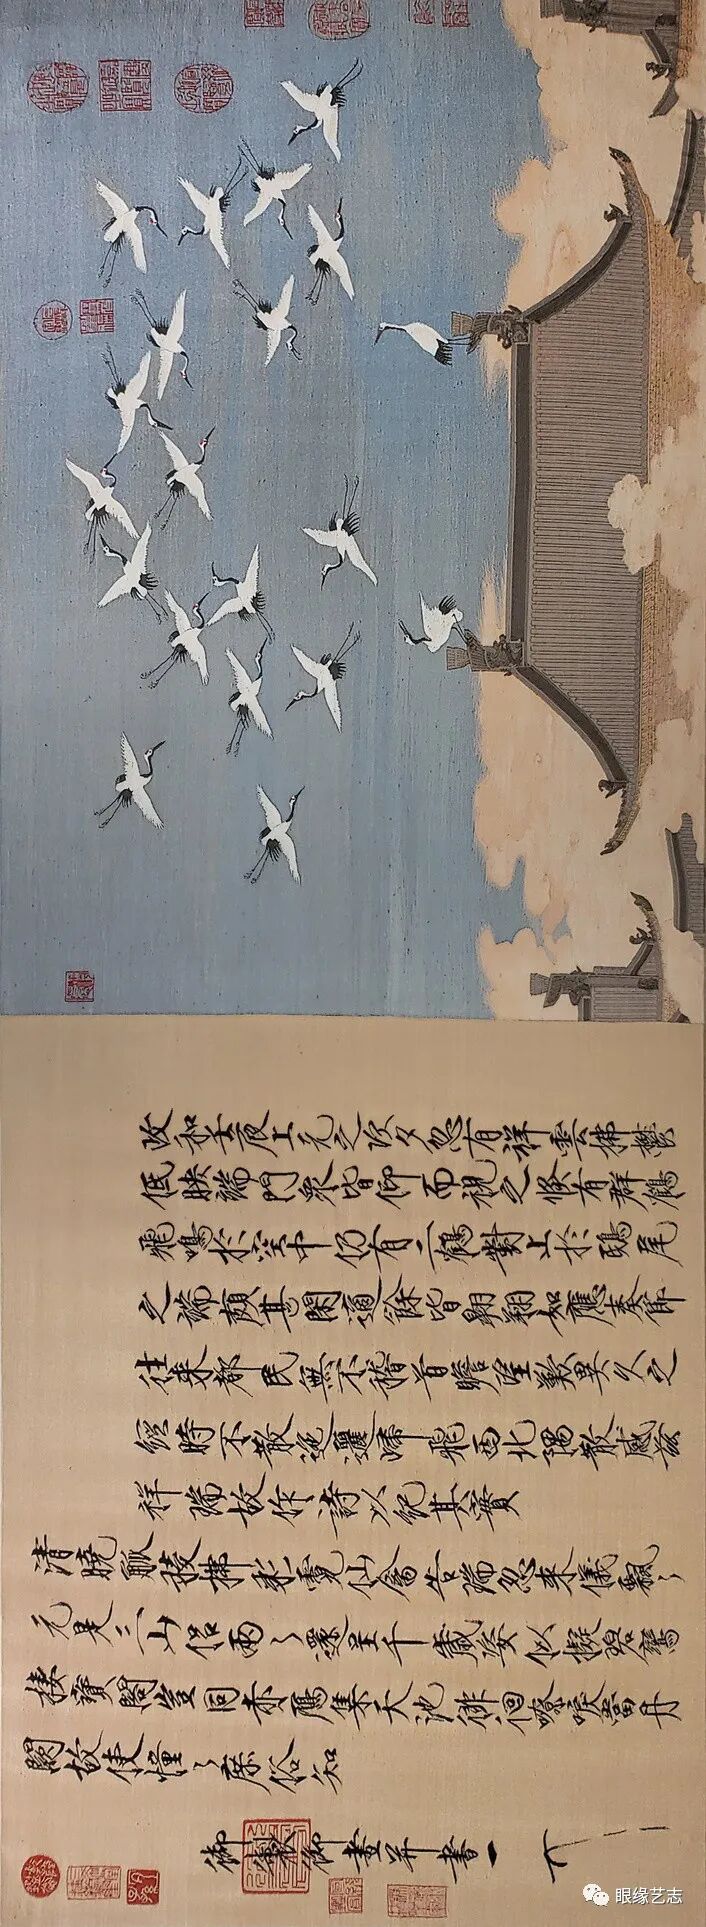 政和壬辰上元之次夕忽有祥雲拂鬱
低映端門衆皆仰而視之倏有群鶴
飛鳴於空中仍有二鶴對止於鴟尾
之端頗甚閑適餘皆翱翔如應奏節
往來都民無不稽首瞻望歎異久之
經時不散迤邐歸飛西北隅散感茲
祥瑞故作詩以紀其實
清曉觚稜拂彩霓仙禽告瑞忽來儀飄〻
元是三山侶兩〻還呈千歲姿似擬碧鸞
棲寶閣豈同赤鴈集天池徘徊嘹唳當丹
闕故使憧〻庶俗知
御製御畫并書
眼缘艺志